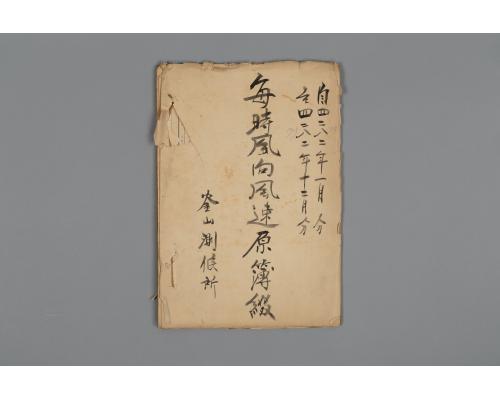 自四二八二年一月分
至四二八二年十二月分
每時風向風速原簿綴
釜山測候所